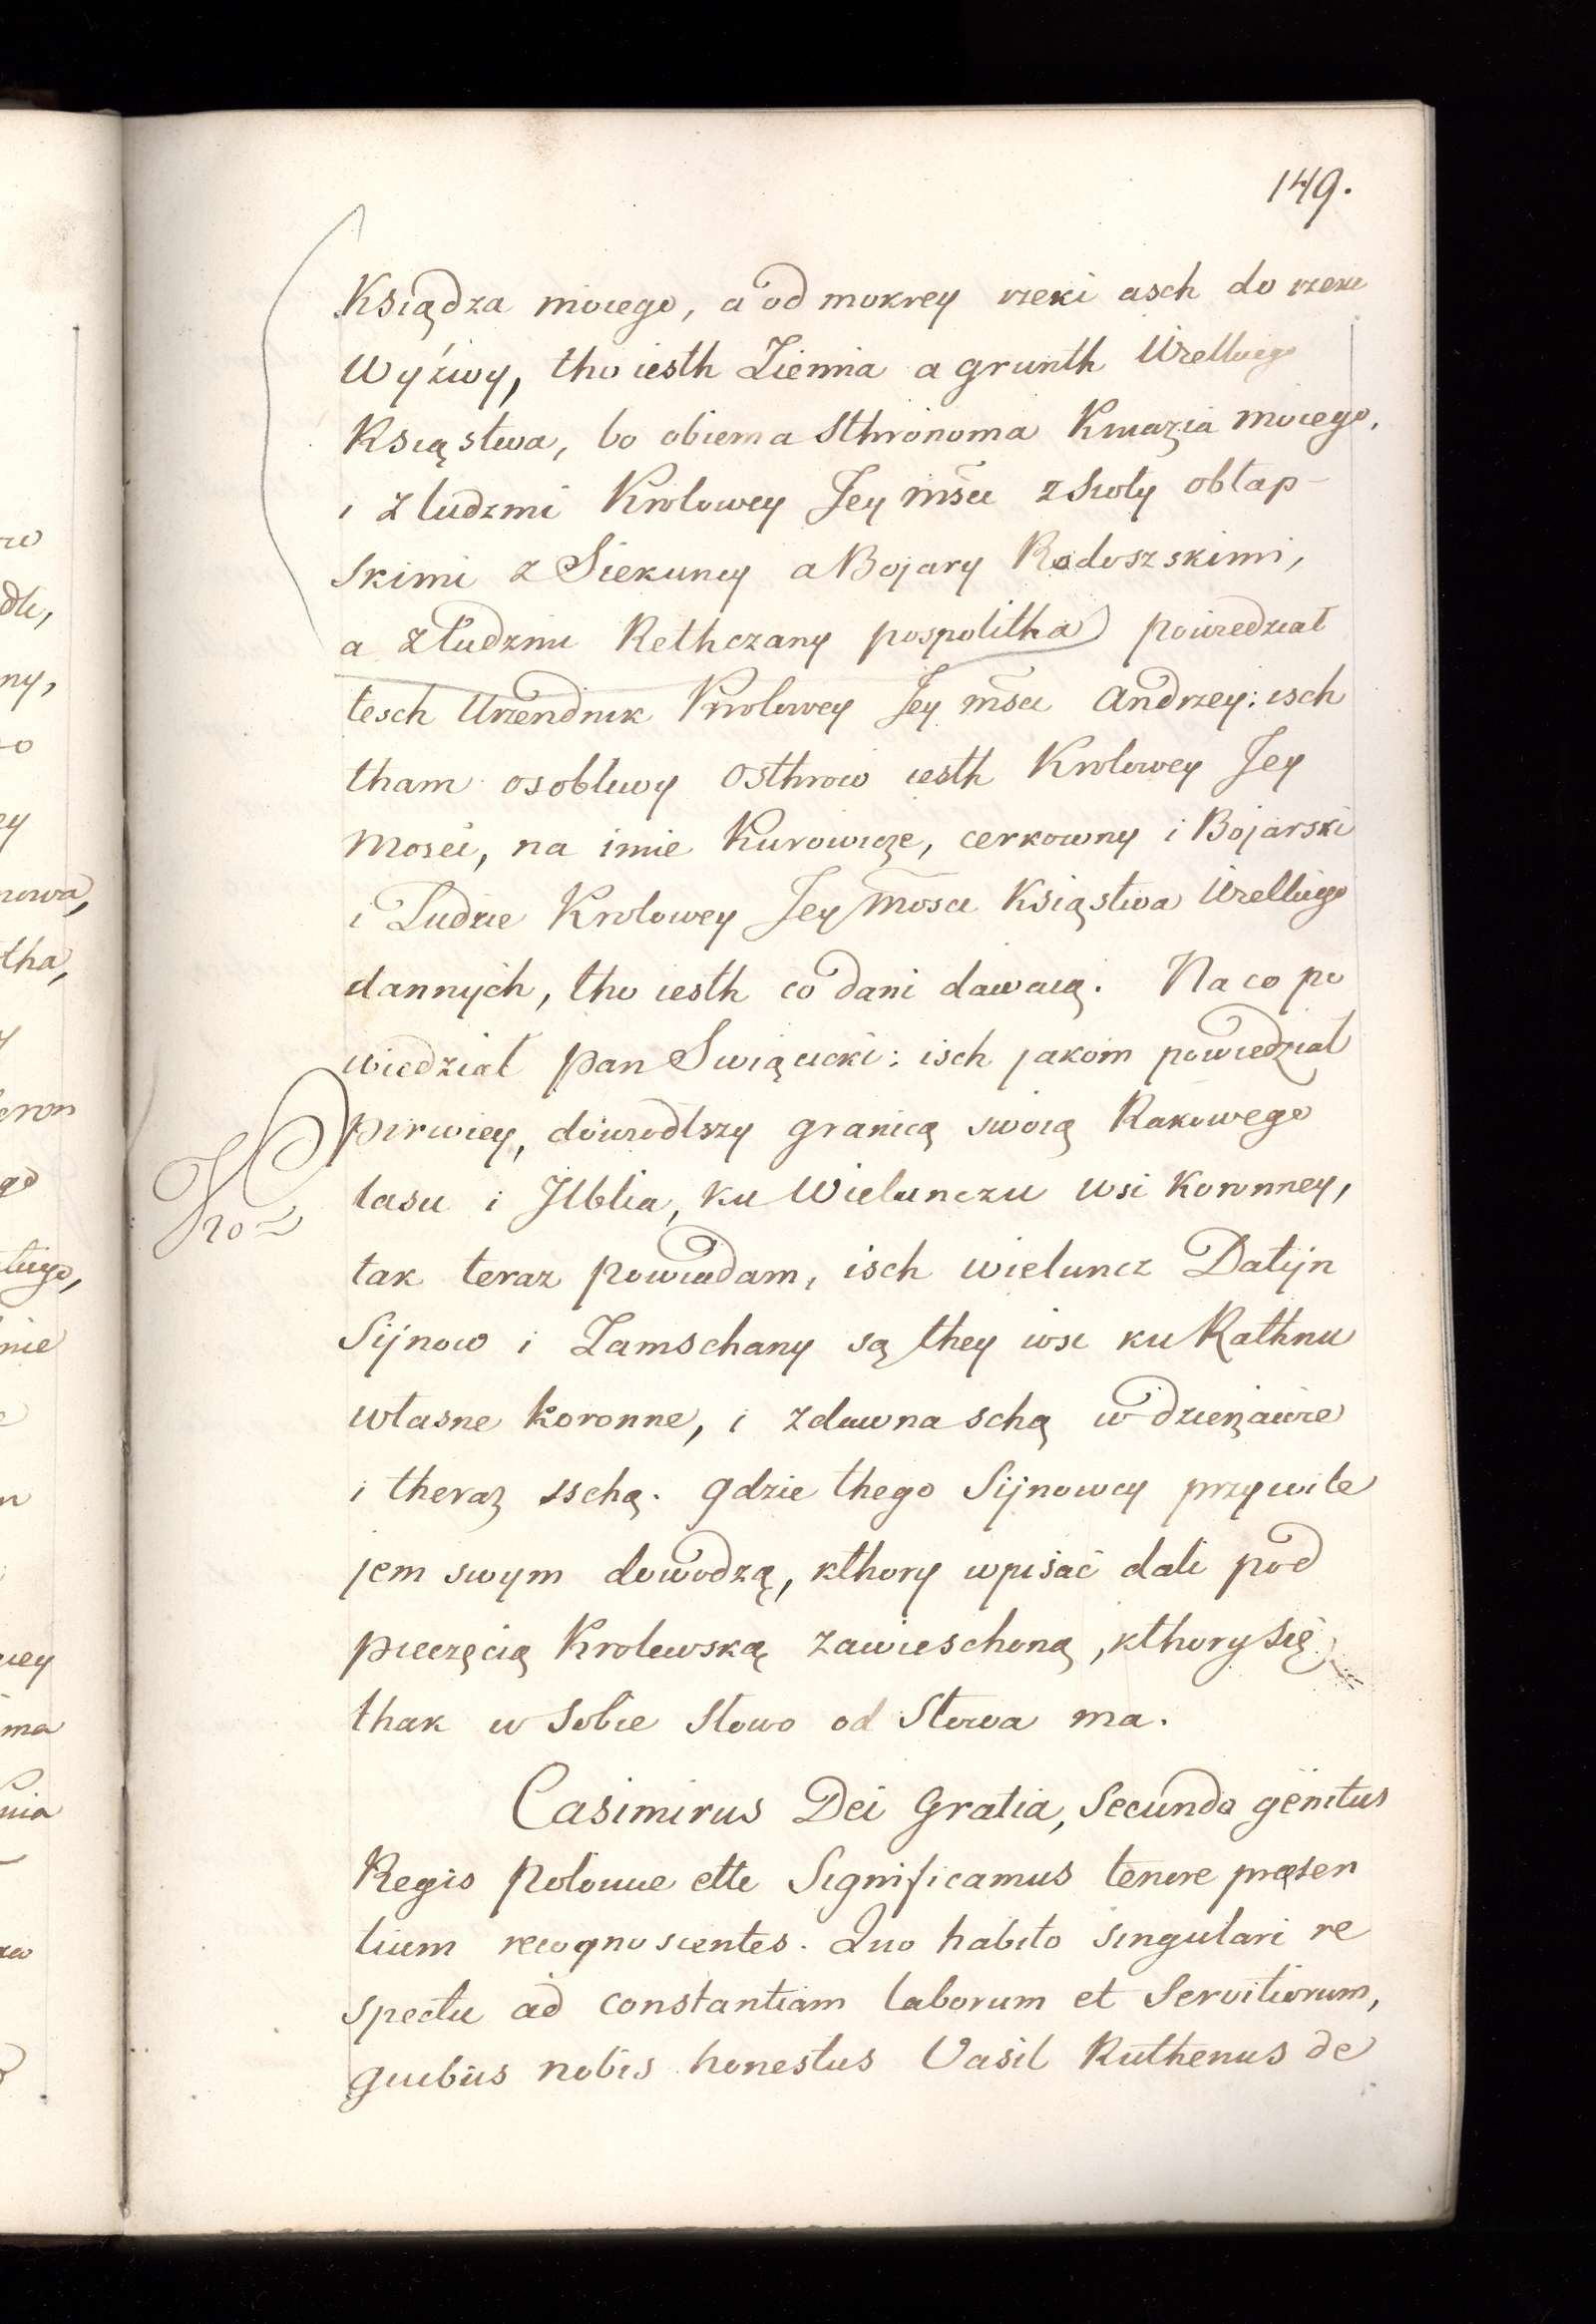 149.
Ksiądza mojego, a od mokrey rzeki asch do rzeki
Wyżwy, tho iesth Ziemia a grunth Wielkiego
Ksiąstwa, bo obiema Sthronoma Kniazia mojego,
i z ludzmi Krolowey Jey mści z Swoły obłap-
skimi z Siekuncy a Bojary Radoszskimi,
a z ludzmi Rethczany pospolitha powiedział
tesch Urzendnik Krolowey Jey mści Andrzey: isch
tham osobliwy Osthrow iesth Krolowey Jey
Mosci, na imie Kurowicze, cerkowny i Bojarski
i Ludzie Krolowey Jey Mosci Ksiąstwa Wielkiego
dannych, tho iesth co dani dawaią. Na co po
wiedział Pan Swiącicki: isch jakom powiedział
pirwiey, dowiodlszy granicą swoią Rakowego
lasu i Ilblia, ku Wielunczu wsi Koronney,
Kro
tak teraz powiadam, isch wieluncz Datyn
Sijnow i Zamschany są they wsi ku Rathnu
własne koronne, i zdawna schą w dzierżawie
i theraz sschą. gdzie thego Sijnowcy przywile
jem swym dowodzą, kthory wpisać dali pod
pieczęcią Krolewską zawieschoną, kthory się
thak w sobie słowo od słowa ma.
Casimirus Dei Gratia, Secundo genitus
Regis Polonie ette Significamus tenore præsen
tium recognoscentes. Quo habito singulari re
spectu ad constantiam laborum et Servitiorum,
quibus nobis honestus Vasil Ruthenus de